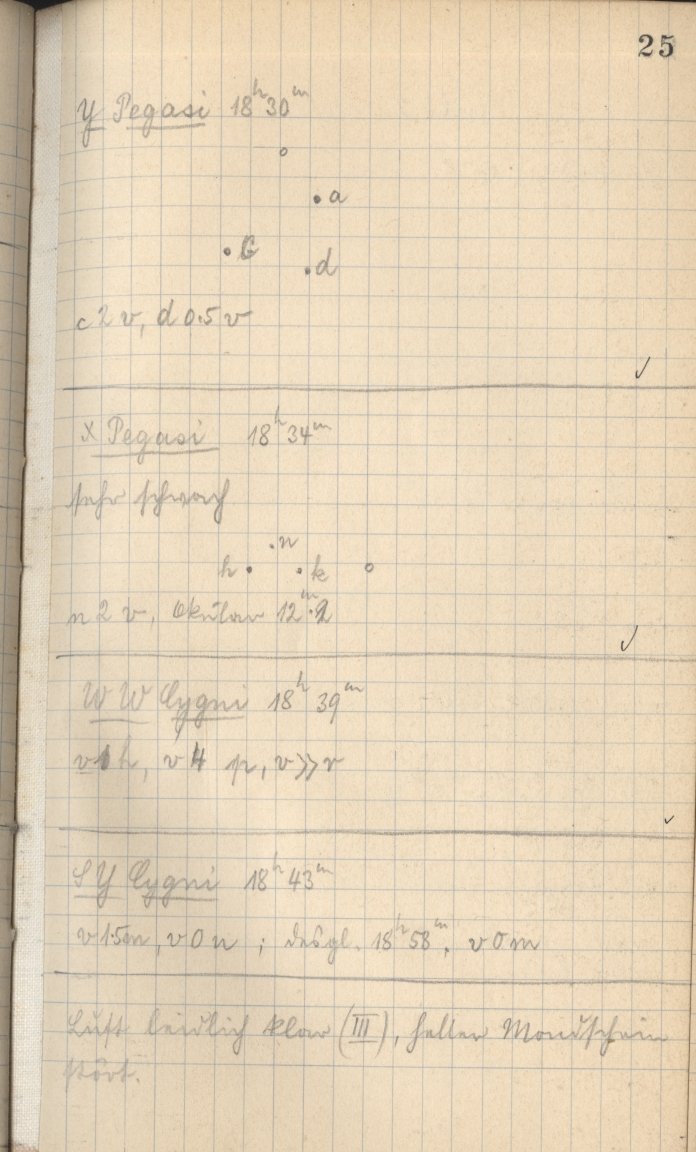 25
Y Pegasi 18h 30m
a
d
c 2 v, d 0.5 v
X Pegasi 18h 34m
sehr schwach
n
h k
n 2 v, Okular 12m.2
WW Cygni 18h 39m
v 1 h, v 4 p, v >> r
SY Cygni 18h 43m
v 1.5 m, v 0 n ; desgl. 18h 58m, v 0 m
Luft leidlich klar (III), heller Mondschein
stört.